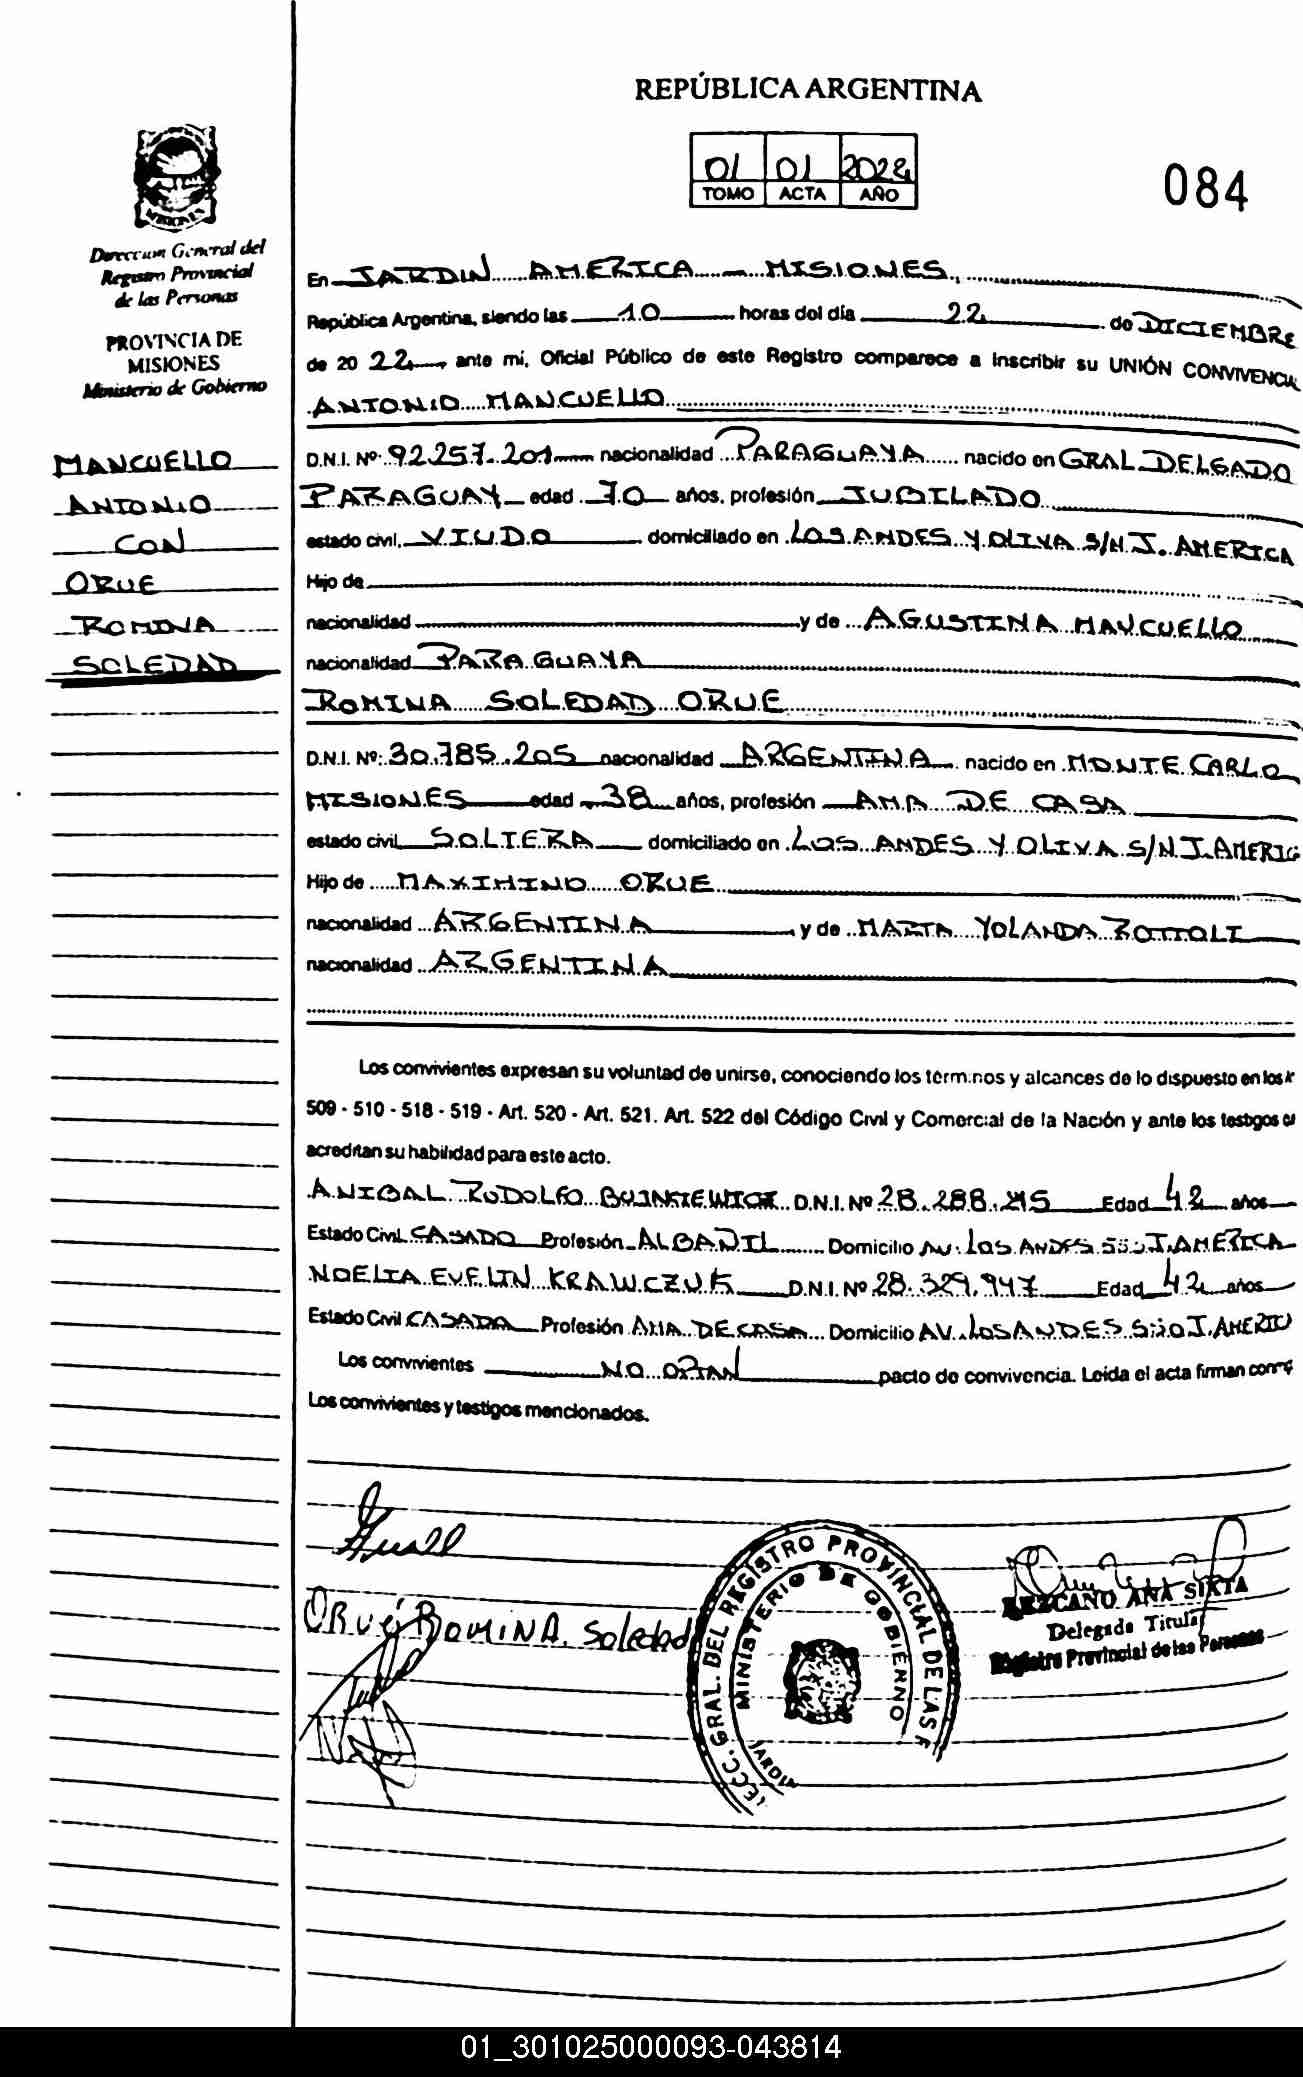 REPÚBLICA ARGENTINA
01 01 2022
TOMO ACTA AÑO
084
MISIONES
Dirección General del
Registro Provincial
de las Personas
PROVINCIA DE
MISIONES
Ministerio de Gobierno
MANCUELLO
ANTONIO
CON
ORUE
ROMINA
SOLEDAD
En JARDIN AMERICA - MISIONES,
República Argentina, siendo las 10 horas del día 22 de DICIEMBRE
de 20 22 ante mi, Oficial Público de este Registro comparece a Inscribir su UNIÓN CONVIVENCIAL
ANTONIO MANCUELLO
D.N.I. Nº 92.257.201 nacionalidad PARAGUAYA nacido en GRAL DELGADO
PARAGUAY edad 70 años, profesión JUBILADO
estado civil, VIUDO domiciliado en LOS ANDES Y OLIVA S/N J. AMERICA
Hijo de
nacionalidad y de AGUSTINA MANCUELLO
nacionalidad PARAGUAYA
ROMINA SOLEDAD ORUE
D.N.I. Nº: 30.785.205 nacionalidad ARGENTINA nacido en MONTE CARLO
MISIONES edad 38 años, profesión AMA DE CASA
estado civil SOLTERA domiciliado en LOS ANDES Y OLIVA S/N J. AMERIC
Hijo de MAXIMINO ORUE
nacionalidad ARGENTINA y de MARTA YOLANDA ROTTOLI
nacionalidad ARGENTINA
Los convivientes expresan su voluntad de unirse, conociendo los términos y alcances de lo dispuesto en los
509 - 510 - 518 - 519 - Art. 520 - Art. 521. Art. 522 del Código Civil y Comercial de la Nación y ante los testigos
acreditan su habilidad para este acto.
ANIBAL RODOLFO D.N.I. Nº 28.288.215 Edad 42 años
Estado Civil CASADO Profesión ALBAÑIL Domicilio AV. LOS ANDES J. AMERICA
NOELIA EVELIN KRAWCZUK D.N.I. Nº 28.329.947 Edad 42 años
Estado Civil CASADA Profesión AMA DE CASA Domicilio AV. LOS ANDES J. AMERIC
Los convivientes NO OPTAN pacto de convivencia. Leída el acta firman
Los convivientes y testigos mencionados.
ORUé ROMINA Soledad
ECC. GRAL. DEL REGISTRO PROVINCIAL DE LAS P
MINISTERIO DE GOBIERNO
JARDIN
LEZCANO ANA SIXTA
Delegada Titular
Registro Provincial de las Personas
01_301025000093-043814